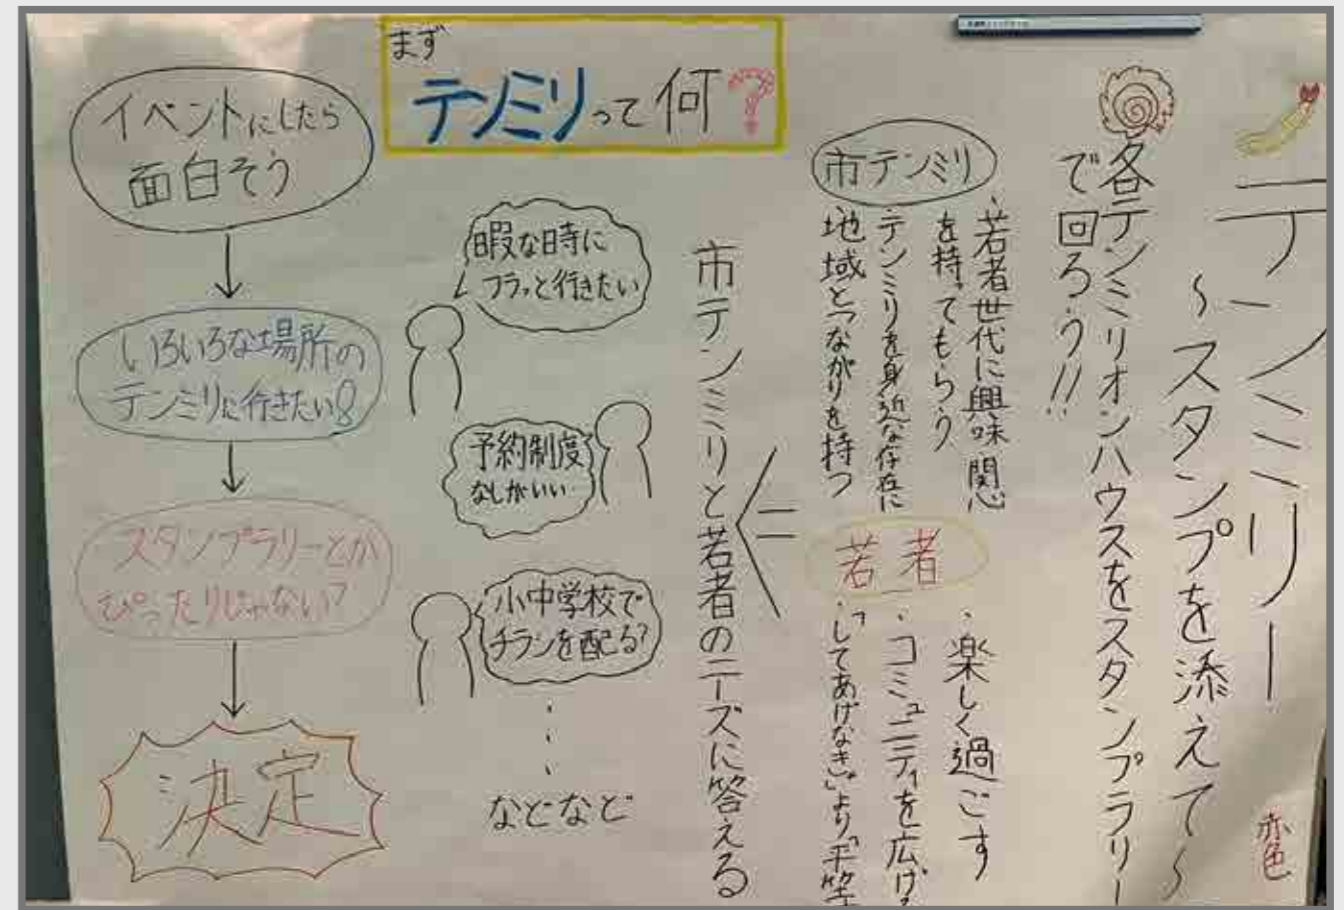 テンミリー
～スタンプを添えて～
赤色
各テンミリオンハウスをスタンプラリー
で回ろう!!
市テンミリ
・若者世代に興味関心
を持ってもらう
・テンミリを身近な存在に
地域とつながりを持つ
若者
・楽しく過ごす
・コミュニティを広げ
・「してあげなき」より「平等
市テンミリと若者のニーズに答える
まず
テンミリって何?
暇な日時に
フラっと行きたい
予約制度
なしがいい…
小中学校で
チラシを配る?
などなど
イベントにしたら
面白そう
いろいろな場所の
テンミリに行きたい!
スタンプラリーとか
ぴったりじゃない?
決定